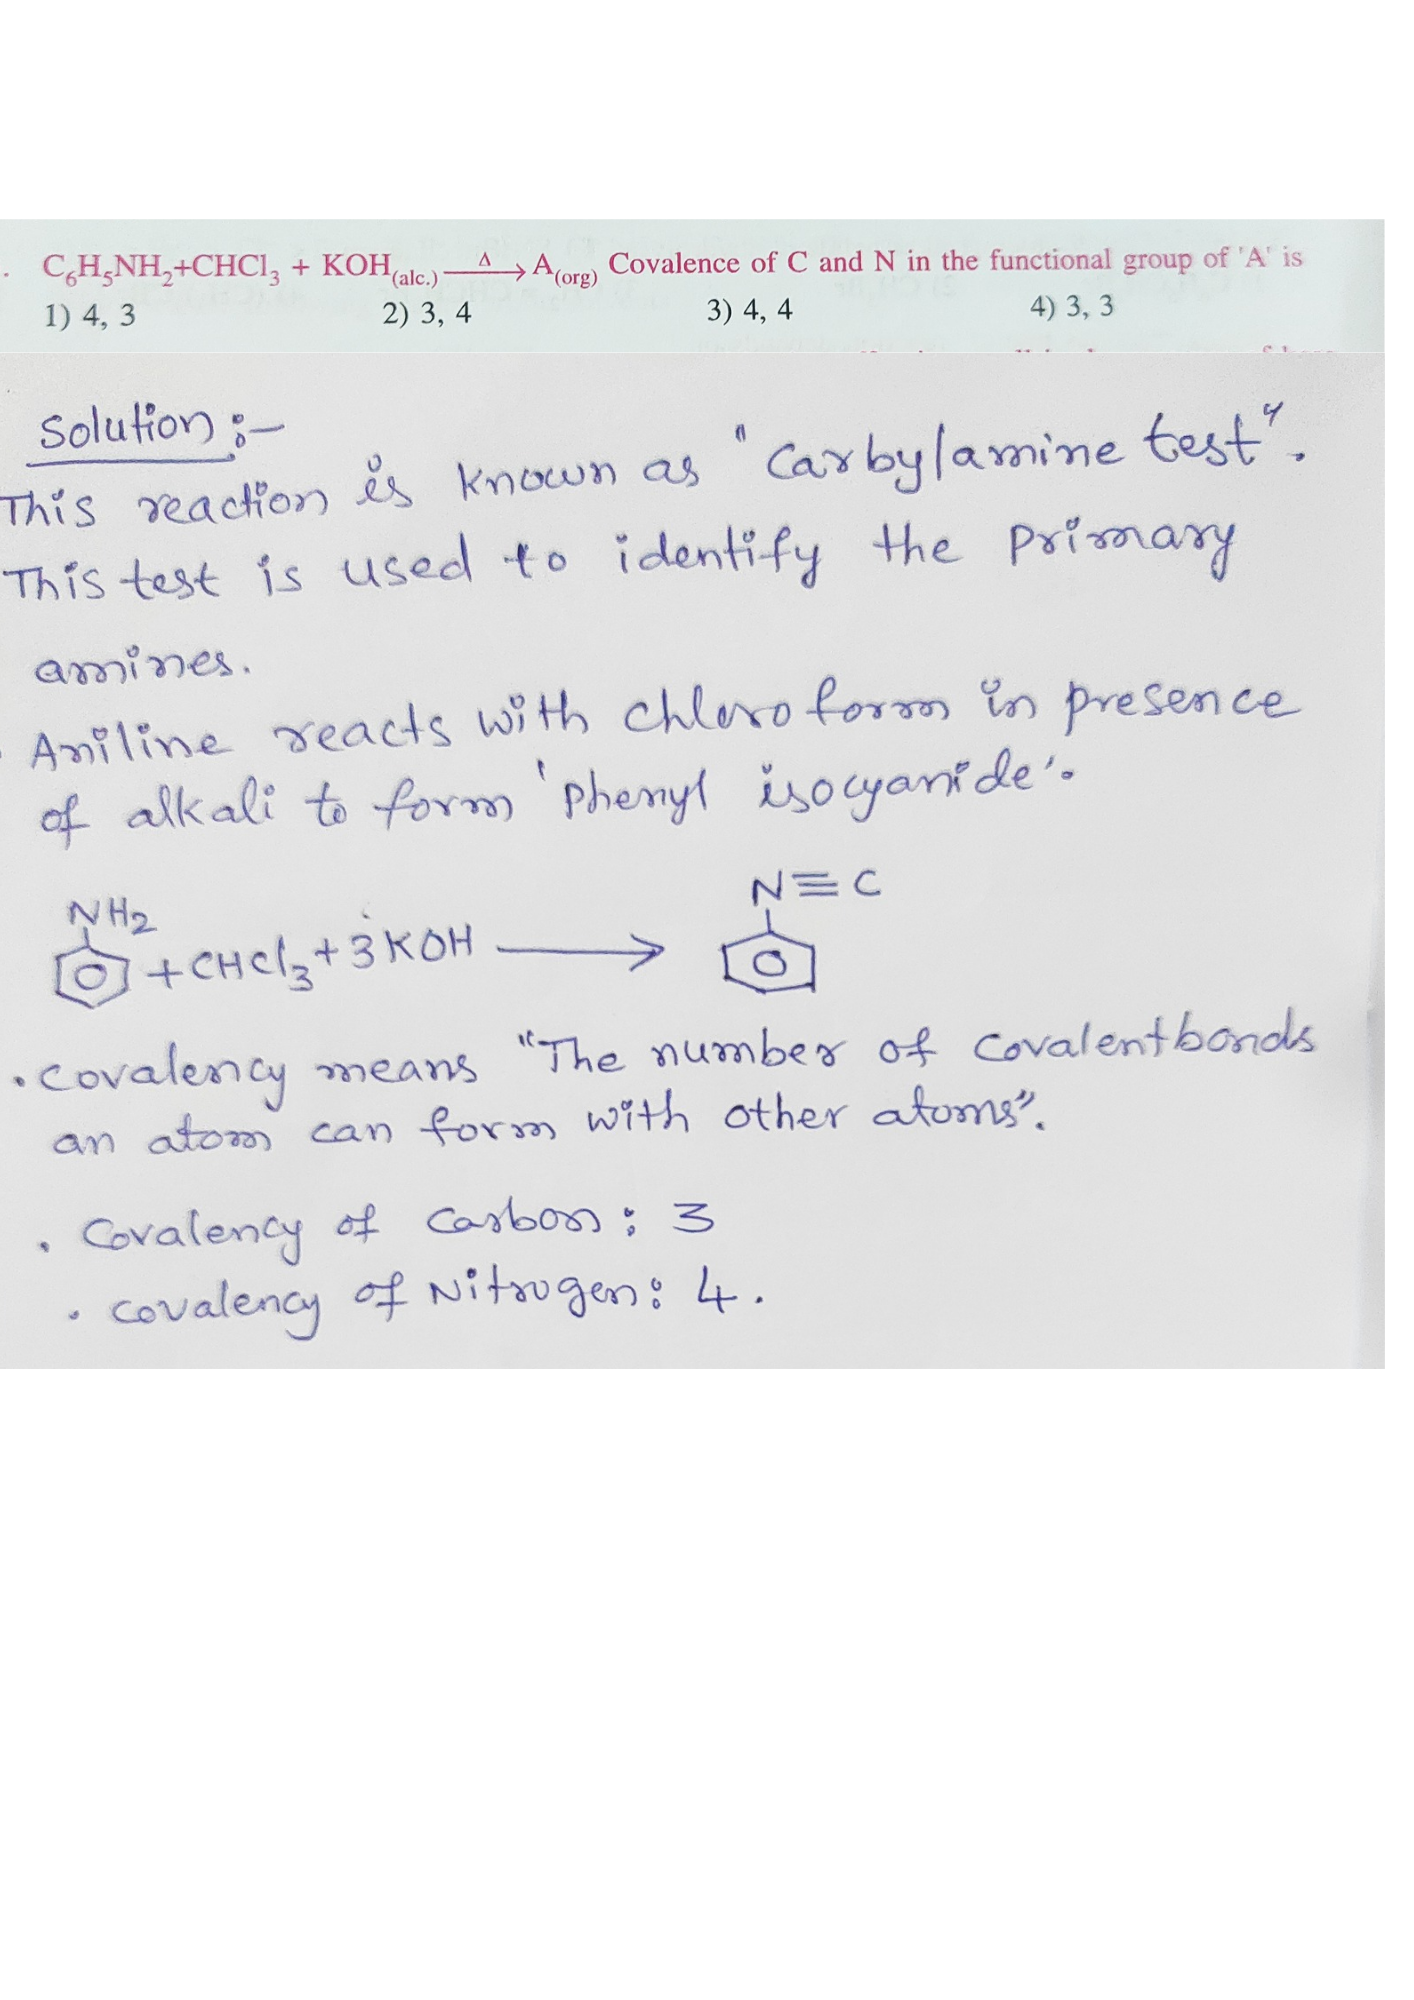 . C₆H₅NH₂+CHCl₃ + KOH(alc.) —Δ→ A(org) Covalence of C and N in the functional group of 'A' is
1) 4, 3 2) 3, 4 3) 4, 4 4) 3, 3
Solution :-
This reaction is known as "Carbylamine test".
This test is used to identify the primary
amines.
Aniline reacts with chloroform in presence
of alkali to form 'phenyl isocyanide'.
NH₂ N≡C
+CHCl₃+3KOH ⟶
. Covalency means "The number of covalent bonds
an atom can form with other atoms".
. Covalency of Carbon: 3
. Covalency of Nitrogen: 4.